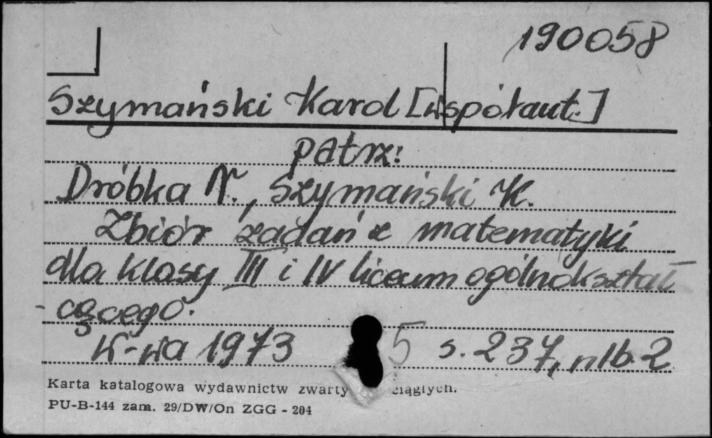 190058
Szymański Karol [współaut.]
patrz:
Dróbka N., Szymański K.
Zbiór zadań z matematyki
dla klasy III i IV liceum ogólnokształ
-cącego.
W-wa 1973 5 s. 237, nlb. 2
Karta katalogowa wydawnictw zwarty ciągłych.
PU-B-144 zam. 29/DW/On ZGG - 204